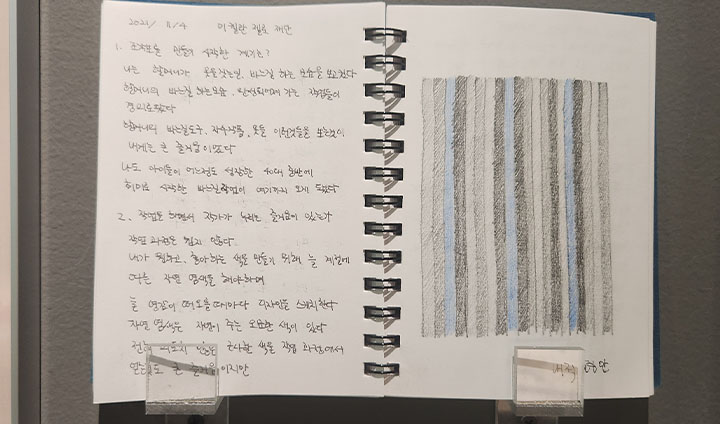 2021/ 11/4 미첼란 재료 재단
1. 조각보를 만들기 시작한 계기는?
나는 할머니가 옷을짓는일, 바느질 하는 모습을 보고컸다
할머니의 바느질 하는모습, 완성되어져 가는 작품들이
경이로웠다
할머니의 바느질도구, 자수상품, 옷들 이런것들을 보는것이
내게는 큰 즐거움이었다
나도 아이들이 어느정도 성장한 40대 후반에
취미로 시작한 바느질작업이 여기까지 오게 되었다
2. 작업을 하면서 작가가 누리는 즐거움이 있는가
작업 과정은 쉽지 않다.
내가 원하고, 좋아하는 색을 만들기 위해 늘 계절에
다른 자연 염색을 해야하며
늘 영감이 떠오를때마다 디자인을 스케치한다
자연 염색은 자연이 주는 오묘한 색이 있다
색을 작업 과정에서
큰 즐거움이지만